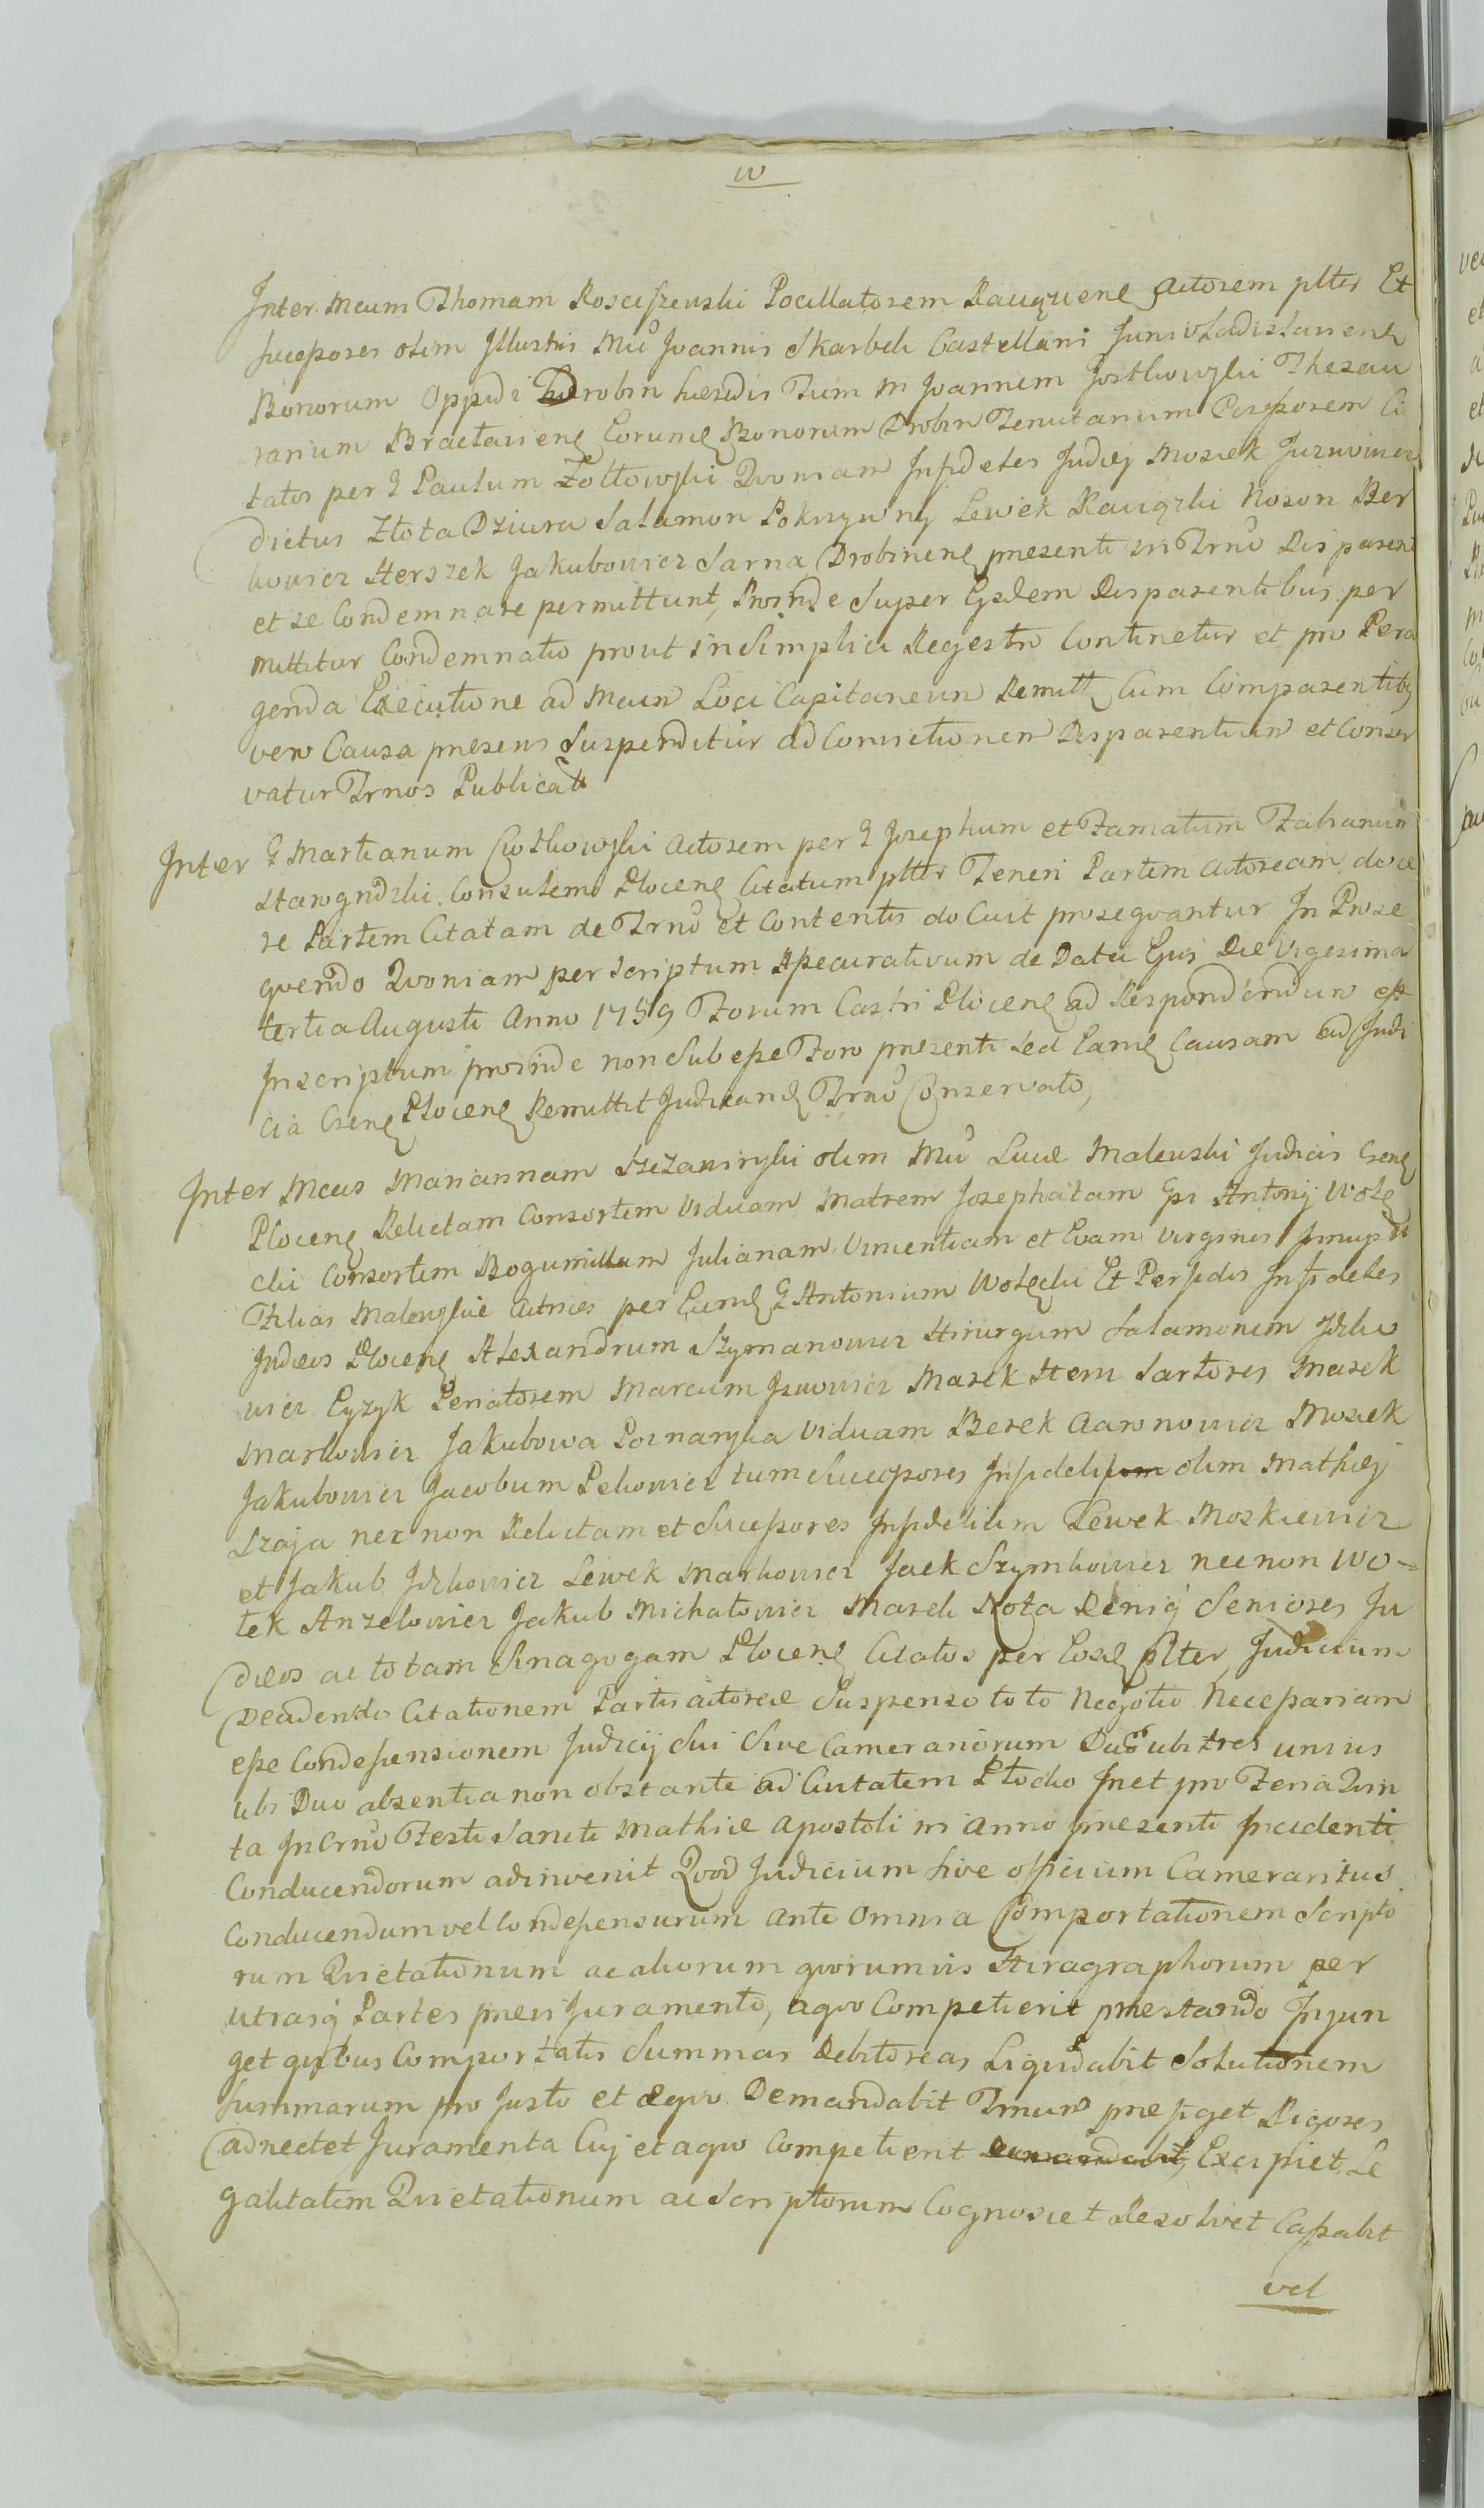 w
Inter Mcum Thomam Kosciszewski Pocillatorem Rauczienẽ Actorem pltēr Et
Succefsores olim Illustris Mci Joannis Skarbek Castellani Junivladislauienẽ
Bonorum Oppidi Drobin hæredis Tum M Joannem Jostkowski Thesau
rarium Braclauienẽ Eorundẽ Bonorum Drobin Tenutarium Pofsefsorem Ci
tatos per G Paulum Żołtowski Qvoniam Infideles Judæj Mosiek
dictus Złota Dziura Salamon Pokrzywny Lewek Rauczki Noson Ber
kowicz Herszek Jakubowicz Sarna Drobinenẽ præsenti in Trno Disparent
et se Condemnare permittunt, Proinde Super Eisdem Disparentibus per
mittitur Condemnatio prout in Simplici Regestro Continetur et pro Pera
genda Executione ad Mcum Loci Capitaneum Remitt Cum Comparentibus
vero Causa præsens Suspenditur ad Convictionem Disparentium et Conser
vatur Trnos Publicat
Inter G Martianum Ciosłkowski Actorem per G Josephum et Famatum Fabianum
Starogrodzki Consulem Plocenẽ Citatum pltēr Teneri Partem Actoream doce
re Partem Citatam de Trno et Contentis docuit prosequantur In Prose
quendo Qvoniam per Scriptum Afsecurativum de Data Ejus Die Vigesima
tertia Augusti Anno 1759 Forum Castri Plocenẽ ad Respondendum est
Inscriptum proinde non Subefse Foro præsenti Sed Eandẽ Causam ad Judi
cia Csenẽ Plocenẽ Remittit Judicandẽ Trno Conservato,
Inter Mcas Mariannam Szczawińska olim Mci Lucæ Malewski Judicis Csenẽ
Plocenẽ Relictam Consortem Viduam Matrem Josephatam Gsi Antonij Wołę
cki Consortem Bogumillam Julianam Vincentiam et Evam Virgines Innuptas
Filias Malewskie Actrices per Eundẽ G Antonium Wołęcki Et Perfidos Infideles
Judæos Plocenẽ Alexandrum Szymanowicz Hirurgum Salamonem Iczko
wicz Eyzyk Peniatorem Marcum Jzuowicz Marek Hersz Sartores Marek
Markowicz Jakubowa Poznanska Viduam Berek Aaronowicz Mosiek
Jakubowicz Jacobum Pekowicz tum Succefsores Infidelis olim Mathiej
Szaja nec non Relictam et Succefsores Infidelium Lewek Moskiewicz
et Jakub Jckowicz Lewek Markowicz Jaek Szymkowicz nec non Wo-
lek Anzelowicz Jakub Michałowicz Marek Nota Deniq Seniores Ju
dæos ac totam Sinagogam Plocenẽ Citatos per Eosdẽ pltēr, Judicium
Decidendo Citationem Partis Actoreæ Suspenso toto Negotio Necefsariam
efse Condefsensionem Judicij Sui Sive Camerariorum Duos ubi tres unius
ubi Duo absentia non obstante ad Civitatem Płocko Fnet pro Feria Quin
ta In Crno Festi Sancti Mathiæ Apostoli in Anno præsenti Incidenti
Conducendorum adinvenit Qvod Judicium Sive officium Cameraritus
Conducendum vel Condefsensurum Ante Omnia Comportationem Scripto
rum Qvietationum ac aliorum qvorumvis Hiragraphorum per
utrasq Partes prævi Juramento, a qvo Competierit præstando Injun
get qvibus Comportatis Summas Debitoreas Liquidabit Solutionem
Summarum pro Justo et Æqvo Demandabit Trnum præfiget Rigores
adnectet Juramenta Cuj et a qvo Competierit Demandabit, Excipiet Le
galitatem Qvietationum ac Scriptorum Cognoscet Resolvet Cafsabit
vel